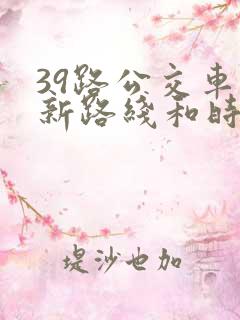 39路公交車
新路綫和時
堤沙也加